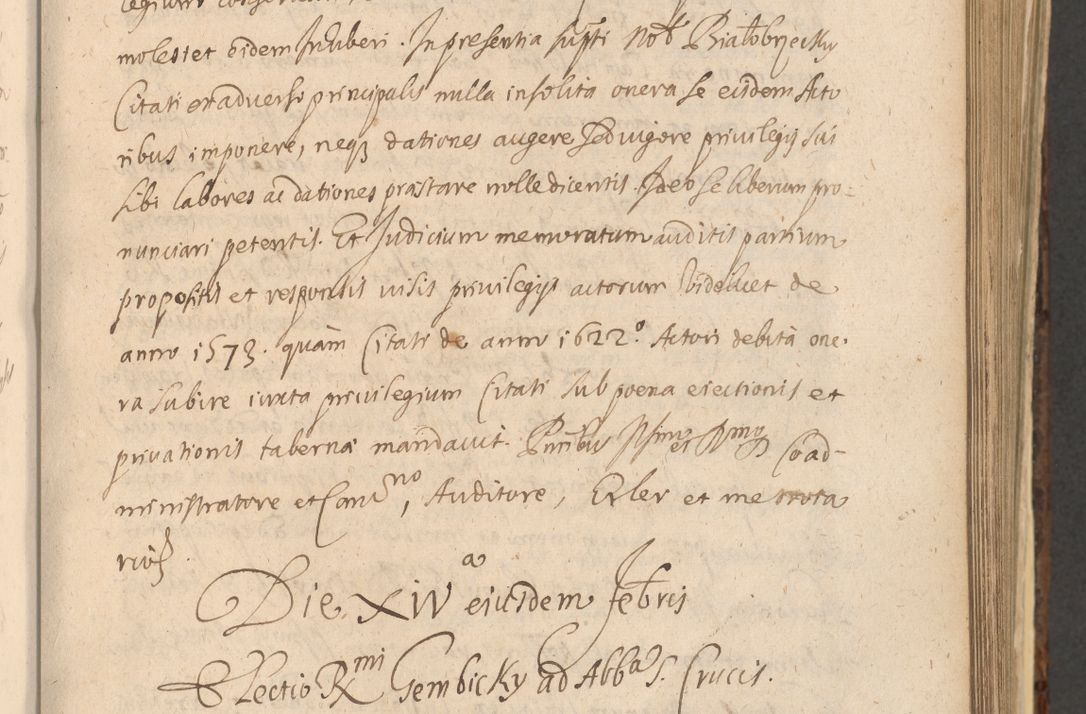 molestet eidem Inhiberi. In presentia supti Nob Białobrzecky
Citati ex adverso principalis nulla insolita onera se eisdem Acto
ribus imponere, neq dationes augere sed vigore privilegij sui
sibi labores ac dationes præstare nolle dicentis. Ideo se liberum pro:
nunciari petentis. Et Judicium memoratum auditis partium
propositis et responsis visis privilegijs actorum videlicet de
anno 1573. quàm Citati de anno 1622º. Actori debità one.
ra subire iuxta privilegium Citati sub poena eiectionis et
privationis tabernæ mandavit. Pntibus Coad-
ministratore et Auditore, Erler et me nota
rio
Die. XIV a eiusdem Febris
Electio Rmi Gembicky ad Abba S. Crucis.